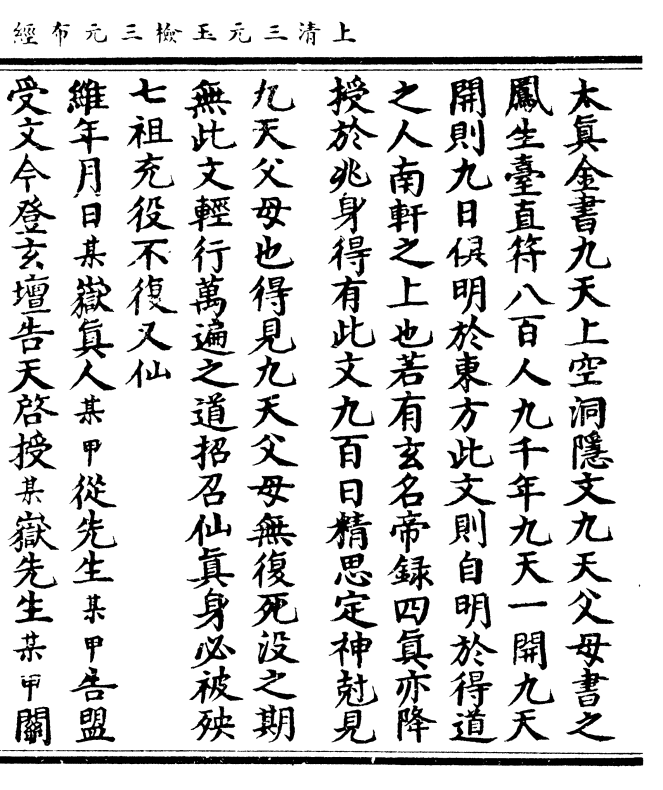 上清三元玉檢三元布經
太眞金書九天上空洞隱文九天父母書之
鳳生臺直符八百人九千年九天一開九天
開則九日俱明於東方此文則自明於得道
之人南軒之上也若有玄名帝録四眞亦降
授於兆身得有此文九百日精思定神尅見
九天父母也得見九天父母無復死没之期
無此文輕行萬遍之道招召仙眞身必被殃
七祖充役不復又仙
維年月日某嶽眞人某甲從先生某甲告盟
受文今登玄壇告天啓授某嶽先生某甲關